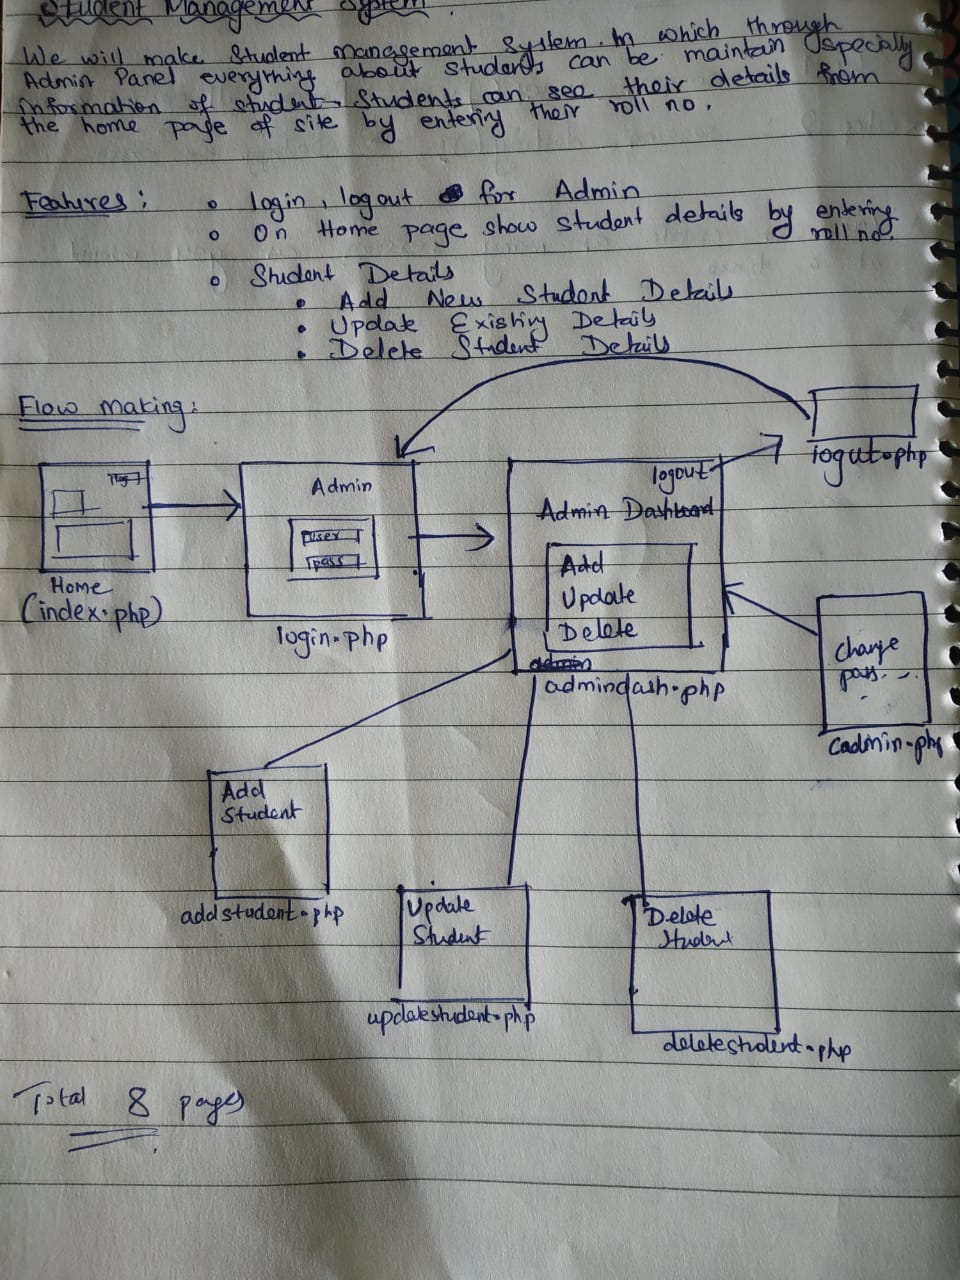 Student Management System.
We will make Student management system. In which through
Admin Panel everything about students can be maintain specially
information of student. Students can see their details from
the home page of site by entering their roll no.
Features:
login, logout for Admin
On Home page show student details by entering
roll no.
Student Details
Add New Student Details
Update Existing Details
Delete Student Details
Flow making:
Home
(index.php)
Admin
user
pass
login.php
logout
Admin Dashboard
Add
Update
Delete
admin
admindash.php
logut.php
Change
pass.
cadmin.php
Add
Student
addstudent.php
Update
Student
updatestudent.php
Delete
Student
deletestudent.php
Total 8 pages